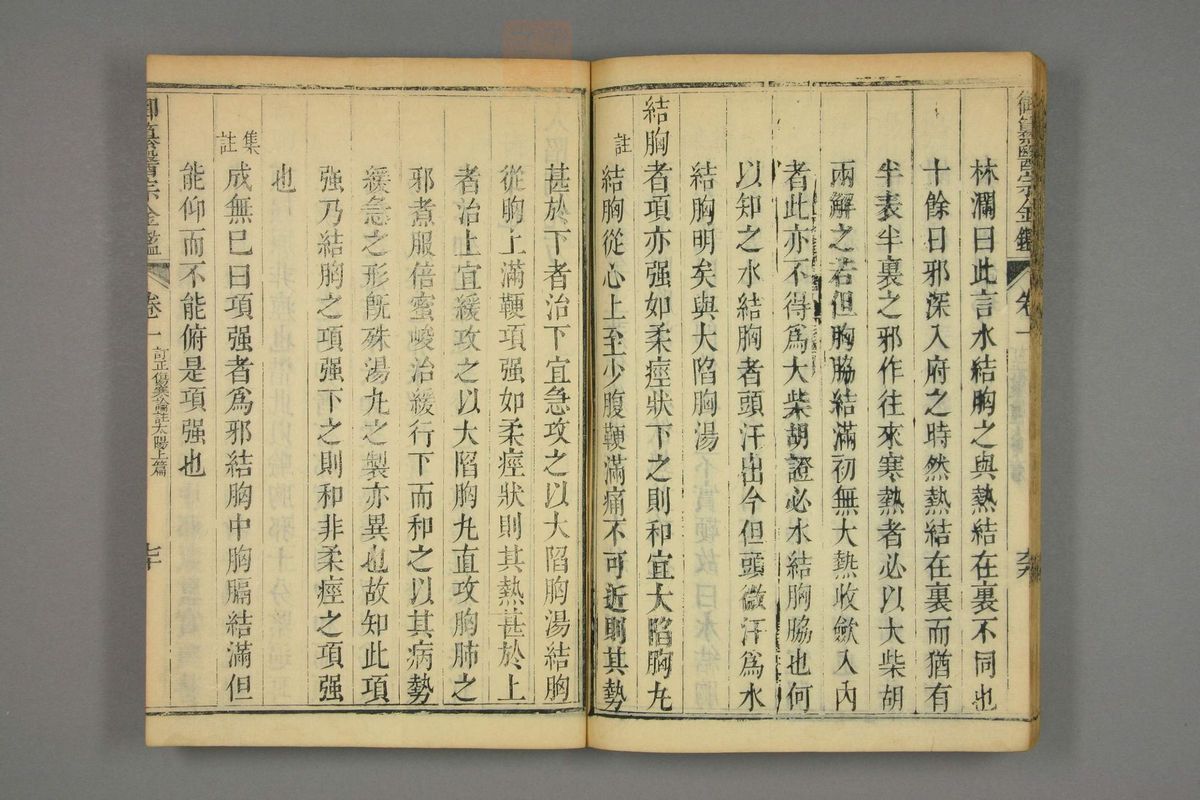 林瀾曰此言水結胸之與熱結在裏不同也
十餘日邪深入府之時然熱結在裏而猶有
半表半裏之邪作往來寒熱者必以大柴胡
兩解之若但胸脇結滿初無大熱收歛入內
者此亦不得爲大柴胡證必水結胸脇也何
以知之水結胸者頭汗出今但頭微汗爲水
結胸明矣與大陷胸湯
結胸者項亦强如柔痙狀下之則和宜大陷胸丸
註 結胸從心上至少腹鞕滿痛不可近則其勢
甚於下者治下宜急攻之以大陷胸湯結胸
從胸上滿鞕項强如柔痙狀則其熱甚於上
者治上宜緩攻之以大陷胸丸直攻胸肺之
邪煮服倍蜜峻治緩行下而和之以其病勢
緩急之形旣殊湯丸之製亦異也故知此項
强乃結胸之項强下之則和非柔痙之項强
也
集註 成無已曰項强者爲邪結胸中胸膈結滿但
能仰而不能俯是項强也
御纂醫宗金鑑 卷一 訂正傷寒論註太陽上篇 七十